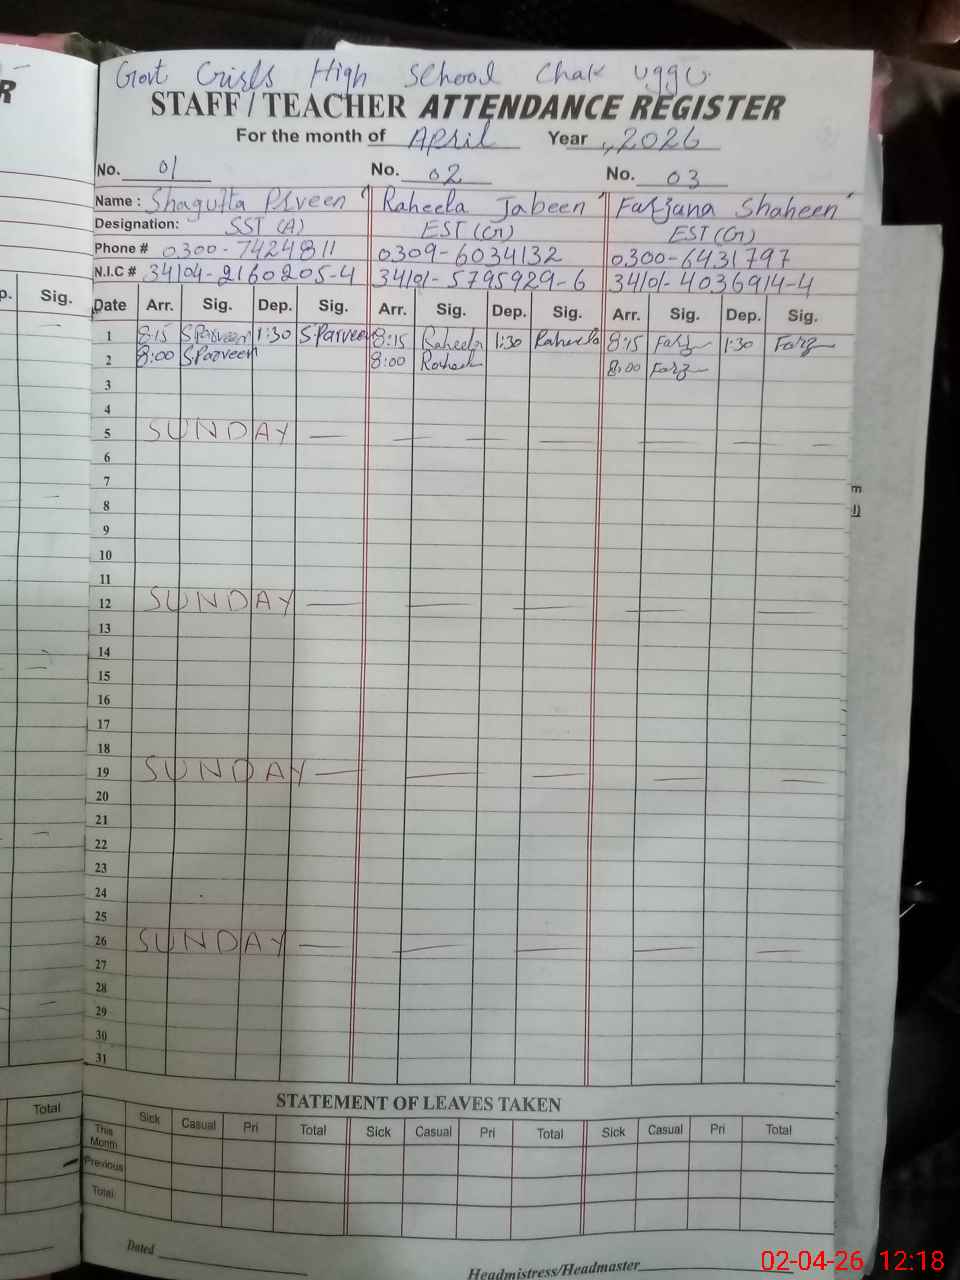 R
Govt Girls High School Chak uggu
STAFF / TEACHER ATTENDANCE REGISTER
For the month of April Year 2026
No. 01 No. 02 No. 03
Name : Shagufta Prveen Raheela Jabeen Farzana Shaheen
Designation: SST (A) EST (Gn) EST (Gn)
Phone # 0300-7424811 0309-6034132 0300-6431797
N.I.C # 34104-2160205-4 34101-5795929-6 34101-4036914-4
p. Sig. Date Arr. Sig. Dep. Sig. Arr. Sig. Dep. Sig. Arr. Sig. Dep. Sig.
1 8:15 SParveen 1:30 SParveen 8:15 Raheela 1:30 Raheela 8:15 Farz 1:30 Farz
2 8:00 SParveen 8:00 Raheela 8:00 Farz
3
4
5 SUNDAY
6
7
8
9
10
11
12 SUNDAY
13
14
15
16
17
18
19 SUNDAY
20
21
22
23
24
25
26 SUNDAY
27
28
29
30
31
STATEMENT OF LEAVES TAKEN
Total Sick Casual Pri Total Sick Casual Pri Total Sick Casual Pri Total
This Month
Previous
Total
Dated
Headmistress/Headmaster
02-04-26 12:18